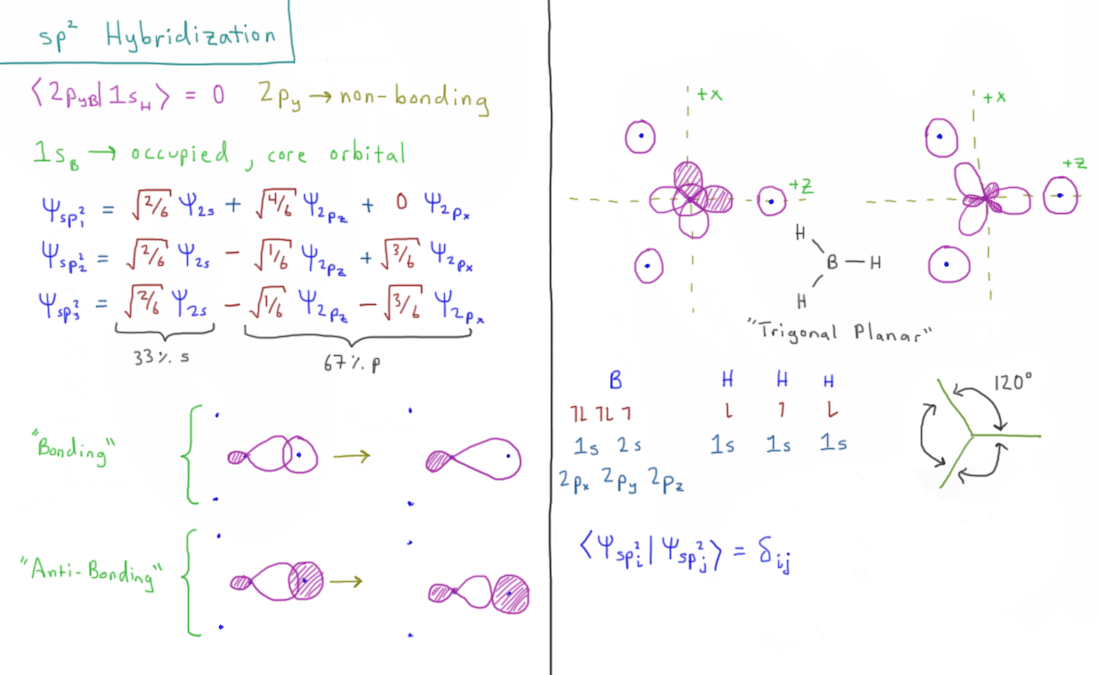 sp² Hybridization
⟨2pyB|1sH⟩ = 0 2py → non-bonding
1sB → occupied, core orbital
Ψsp²₁ = √2/6 Ψ2s + √4/6 Ψ2pz + 0 Ψ2px
Ψsp²₂ = √2/6 Ψ2s - √1/6 Ψ2pz + √3/6 Ψ2px
Ψsp²₃ = √2/6 Ψ2s - √1/6 Ψ2pz - √3/6 Ψ2px
33% s 67% p
"Bonding"
→
"Anti-Bonding"
→
+x
+z
+x
+z
H
B — H
H
"Trigonal Planar"
B H H H
1L 1L 1 L 1 L
1s 2s 1s 1s 1s
2px 2py 2pz
120°
⟨Ψsp²i|Ψsp²j⟩ = δij